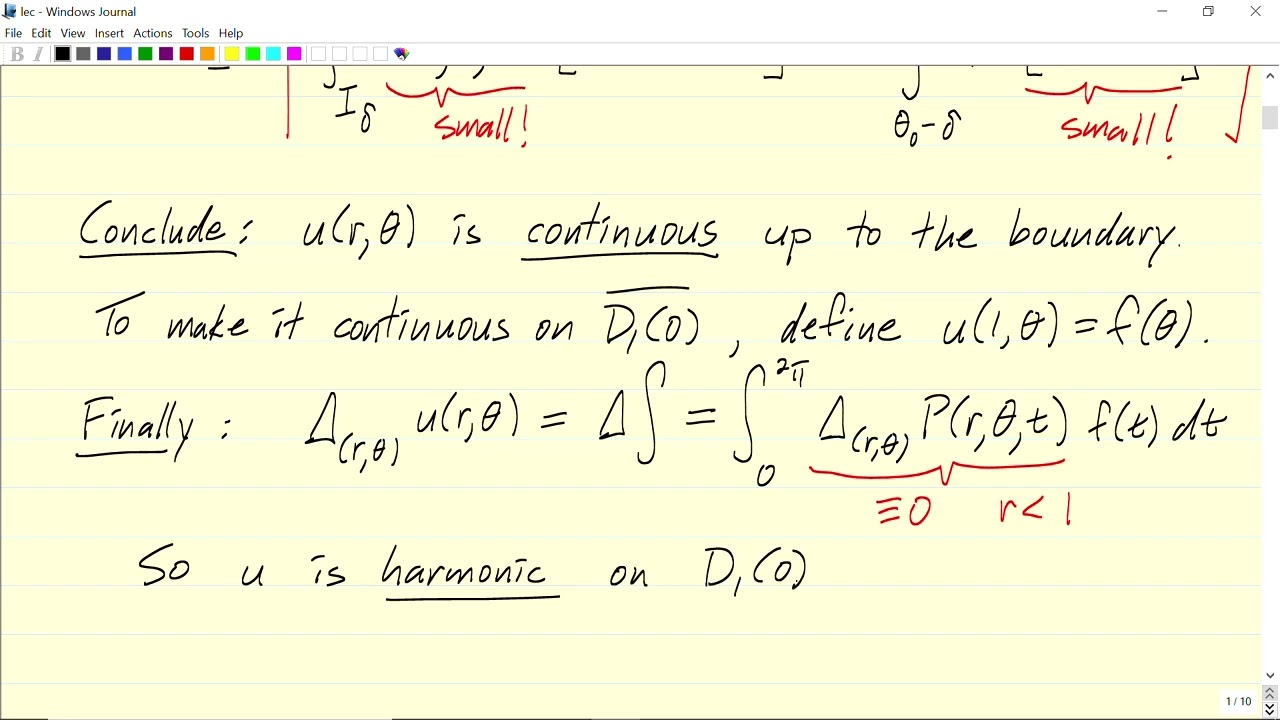 lec - Windows Journal
File Edit View Insert Actions Tools Help
B I
I_δ small! θ₀-δ small!
Conclude: u(r,θ) is continuous up to the boundary.
To make it continuous on D₁(0), define u(1,θ) = f(θ).
Finally: Δ_(r,θ) u(r,θ) = Δ∫ = ∫₀^2π Δ_(r,θ) P(r,θ,t) f(t) dt
≡0 r<1
So u is harmonic on D₁(0)
1 / 10